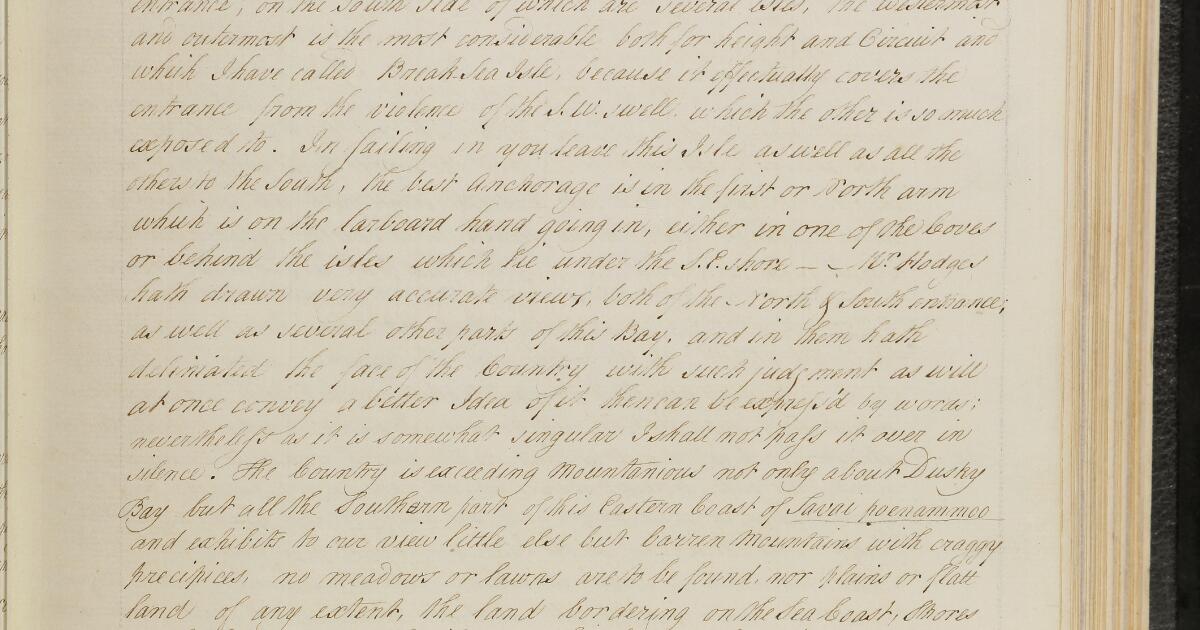 entrance, on the South side of which are several isles, the westermost
and outermost is the most considerable both for height and Circuit and
which I have called Break-Sea Isle, because it effectually covers the
entrance from the violence of the S.W. swell. which the other is so much
exposed to. In sailing in you leave this Isle as well as all the
others to the South, the best Anchorage is in the first or North arm
which is on the larboard hand going in, either in one of the Coves
or behind the isles which lie under the S.E. shore — — Mr. Hodges
hath drawn very accurate views, both of the North & South entrance,
as well as several other parts of this Bay, and in them hath
deliniated the face of the Country with such judgment as will
at once convey a better Idea of it then can be express'd by words;
nevertheless as it is somewhat singular I shall not pass it over in
silence. The Country is exceeding Mountanious not only about Dusky
Bay but all the Southern part of this Eastern Coast of Tavai poenammoo
and exhibits to our view little else but barren Mountains with craggy
precipices, no meadows or lawns are to be found, nor plains or flatt
land of any extent, the land bordering on the Sea Coast, Shores